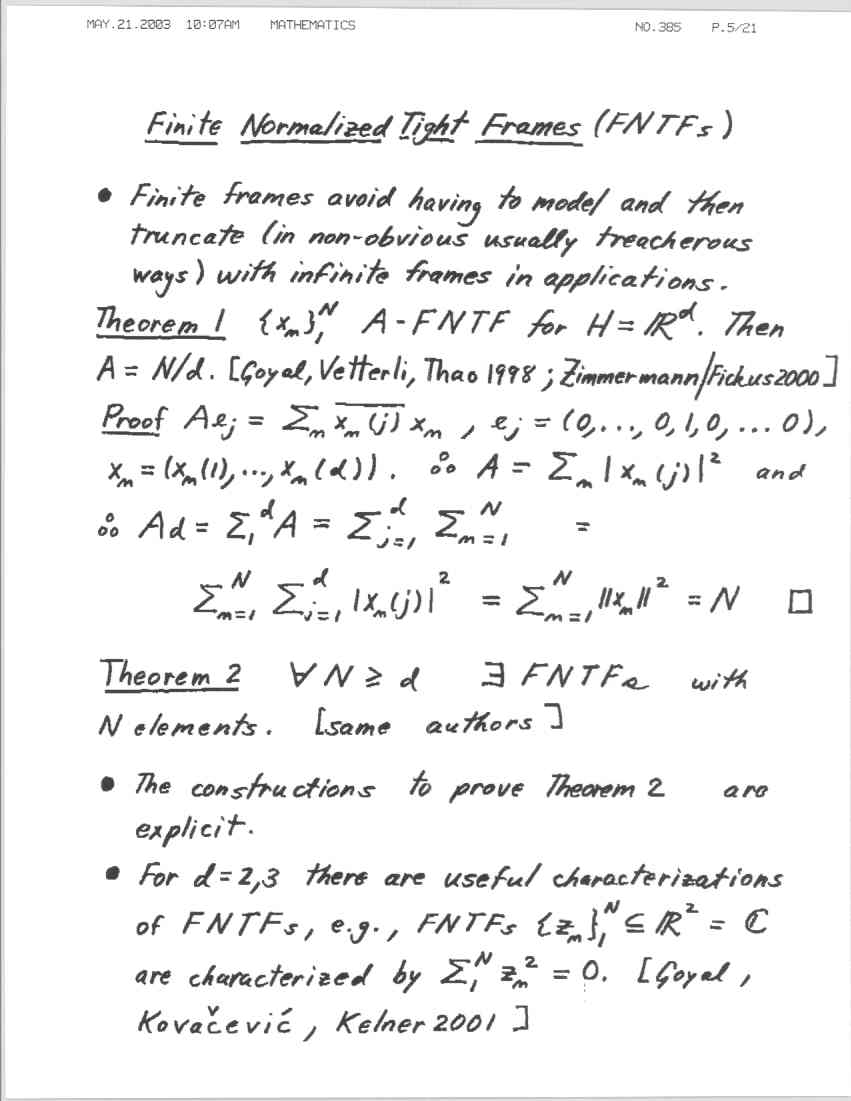 MAY.21.2003 10:07AM MATHEMATICS NO.385 P.5/21
Finite Normalized Tight Frames (FNTFs)
• Finite frames avoid having to model and then
truncate (in non-obvious usually treacherous
ways) with infinite frames in applications.
Theorem 1 {xₘ}₁ᴺ A-FNTF for H = ℝᵈ. Then
A = N/d. [Goyal, Vetterli, Thao 1998; Zimmermann/Fickus 2000]
Proof Aeⱼ = Σₘ \overline{xₘ(j)} xₘ, eⱼ = (0,..., 0,1,0, ... 0),
xₘ = (xₘ(1),..., xₘ(d)). ∴ A = Σₘ |xₘ(j)|² and
∴ Ad = Σ₁ᵈ A = Σⱼ₌₁ᵈ Σₘ₌₁ᴺ =
Σₘ₌₁ᴺ Σⱼ₌₁ᵈ |xₘ(j)|² = Σₘ₌₁ᴺ ||xₘ||² = N □
Theorem 2 ∀ N ≥ d ∃ FNTFs with
N elements. [same authors]
• The constructions to prove Theorem 2 are
explicit.
• For d=2,3 there are useful characterizations
of FNTFs, e.g., FNTFs {zₘ}₁ᴺ ⊆ ℝ² = ℂ
are characterized by Σ₁ᴺ zₘ² = 0. [Goyal,
Kovačević, Kelner 2001]